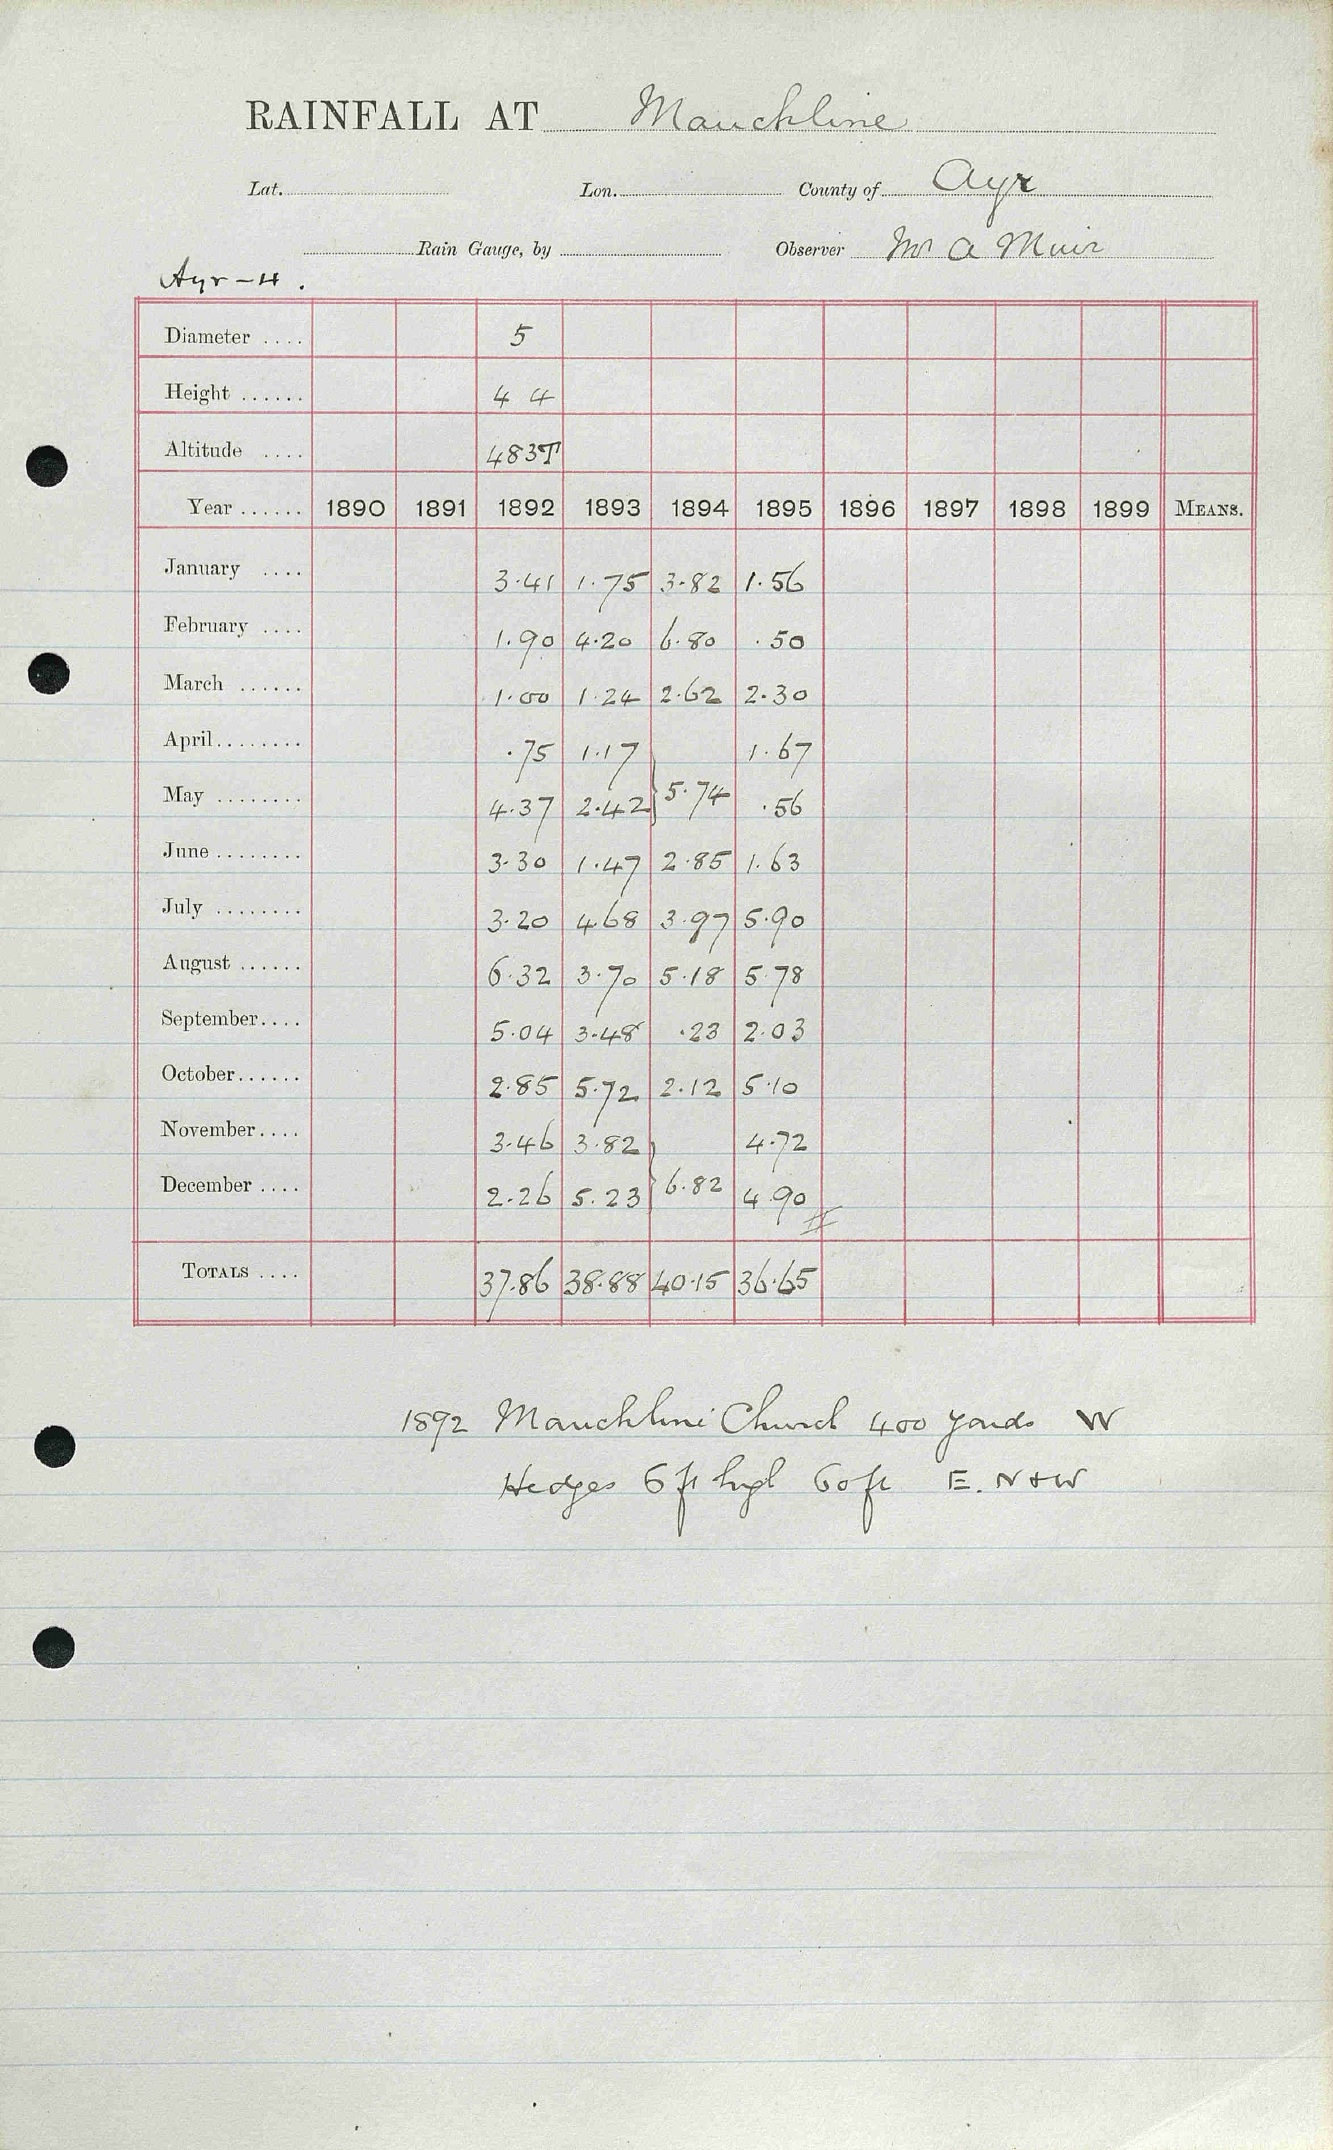 RAINFALL AT Mauchline
Lat. Lon. County of Ayr
Rain Gauge, by Observer Mr A Muir
Ayr-4.
Diameter .... 5
Height ...... 4 4
Altitude .... 483T
Year ...... 1890 1891 1892 1893 1894 1895 1896 1897 1898 1899 MEANS.
January .... 3.41 1.75 3.82 1.56
February .... 1.90 4.20 6.80 .50
March ...... 1.00 1.24 2.62 2.30
April........ .75 1.17 1.67
May ........ 4.37 2.42 } 5.74 .56
June ........ 3.30 1.47 2.85 1.63
July ........ 3.20 4.68 3.97 5.90
August ...... 6.32 3.70 5.18 5.78
September.... 5.04 3.48 .23 2.03
October...... 2.85 5.72 2.12 5.10
November.... 3.46 3.82 4.72
December .... 2.26 5.23 } 6.82 4.90
TOTALS .... 37.86 38.88 40.15 36.65
1892 Mauchline Church 400 yards W
Hedges 6 ft high 60 ft E. N + W